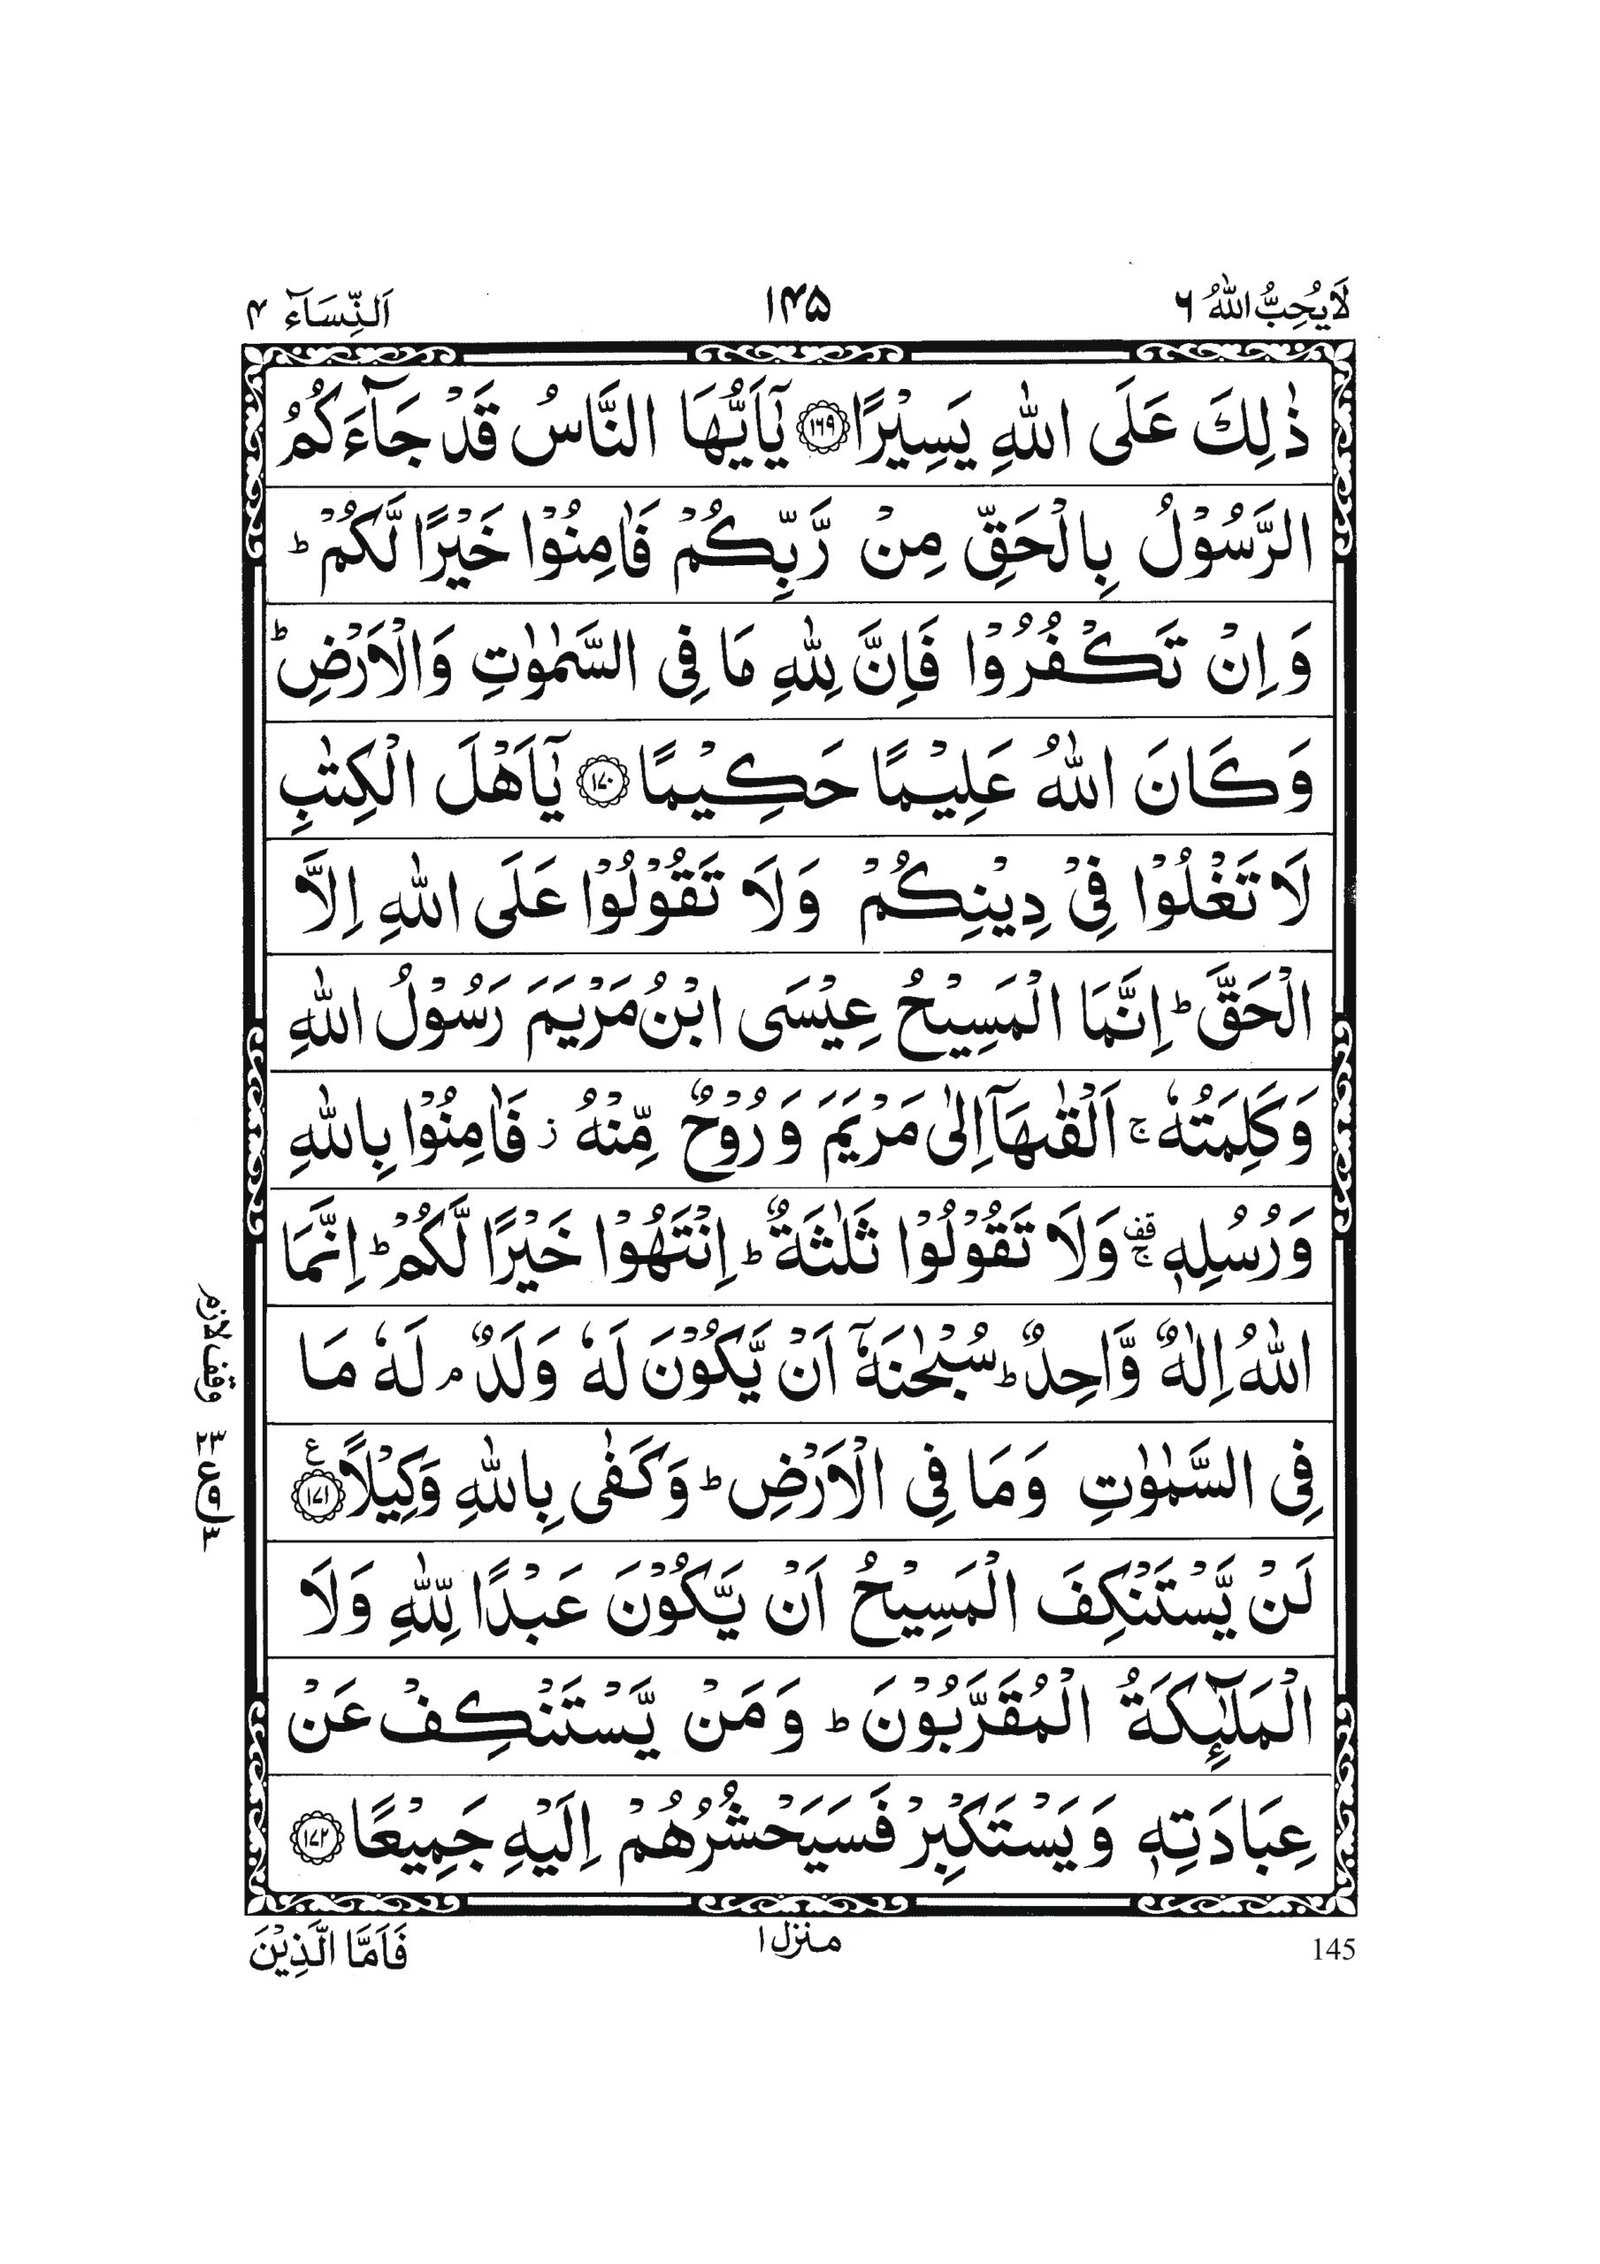 لَا يُحِبُّ اللّٰهُ ٦
١٤٥
اَلنِّسَآء ٤
ذٰلِكَ عَلَى اللّٰهِ يَسِيْرًا ﴿١٦٩﴾ يٰۤاَيُّهَا النَّاسُ قَدْ جَآءَكُمُ
الرَّسُوْلُ بِالْحَقِّ مِنْ رَّبِّكُمْ فَاٰمِنُوْا خَيْرًا لَّكُمْ ؕ
وَ اِنْ تَكْفُرُوْا فَاِنَّ لِلّٰهِ مَا فِى السَّمٰوٰتِ وَالْاَرْضِ ؕ
وَ كَانَ اللّٰهُ عَلِيْمًا حَكِيْمًا ﴿١٧٠﴾ يٰۤاَهْلَ الْكِتٰبِ
لَا تَغْلُوْا فِىْ دِيْنِكُمْ وَلَا تَقُوْلُوْا عَلَى اللّٰهِ اِلَّا
الْحَقَّ ؕ اِنَّمَا الْمَسِيْحُ عِيْسَى ابْنُ مَرْيَمَ رَسُوْلُ اللّٰهِ
وَ كَلِمَتُهٗ ۚ اَلْقٰٮهَاۤ اِلٰى مَرْيَمَ وَ رُوْحٌ مِّنْهُ ز فَاٰمِنُوْا بِاللّٰهِ
وَ رُسُلِهٖ ۚ قف وَلَا تَقُوْلُوْا ثَلٰثَةٌ ؕ اِنْتَهُوْا خَيْرًا لَّكُمْ ؕ اِنَّمَا
اللّٰهُ اِلٰهٌ وَّاحِدٌ ؕ سُبْحٰنَهٗۤ اَنْ يَّكُوْنَ لَهٗ وَلَدٌ ۘ لَهٗ مَا
فِى السَّمٰوٰتِ وَمَا فِى الْاَرْضِ ؕ وَكَفٰى بِاللّٰهِ وَكِيْلًا ع ﴿١٧١﴾
لَنْ يَّسْتَنْكِفَ الْمَسِيْحُ اَنْ يَّكُوْنَ عَبْدًا لِّلّٰهِ وَلَا
الْمَلٰٓئِكَةُ الْمُقَرَّبُوْنَ ؕ وَ مَنْ يَّسْتَنْكِفْ عَنْ
عِبَادَتِهٖ وَ يَسْتَكْبِرْ فَسَيَحْشُرُهُمْ اِلَيْهِ جَمِيْعًا ﴿١٧٢﴾
وقف لازم
145
منزل ١
فَاَمَّا الَّذِيْنَ